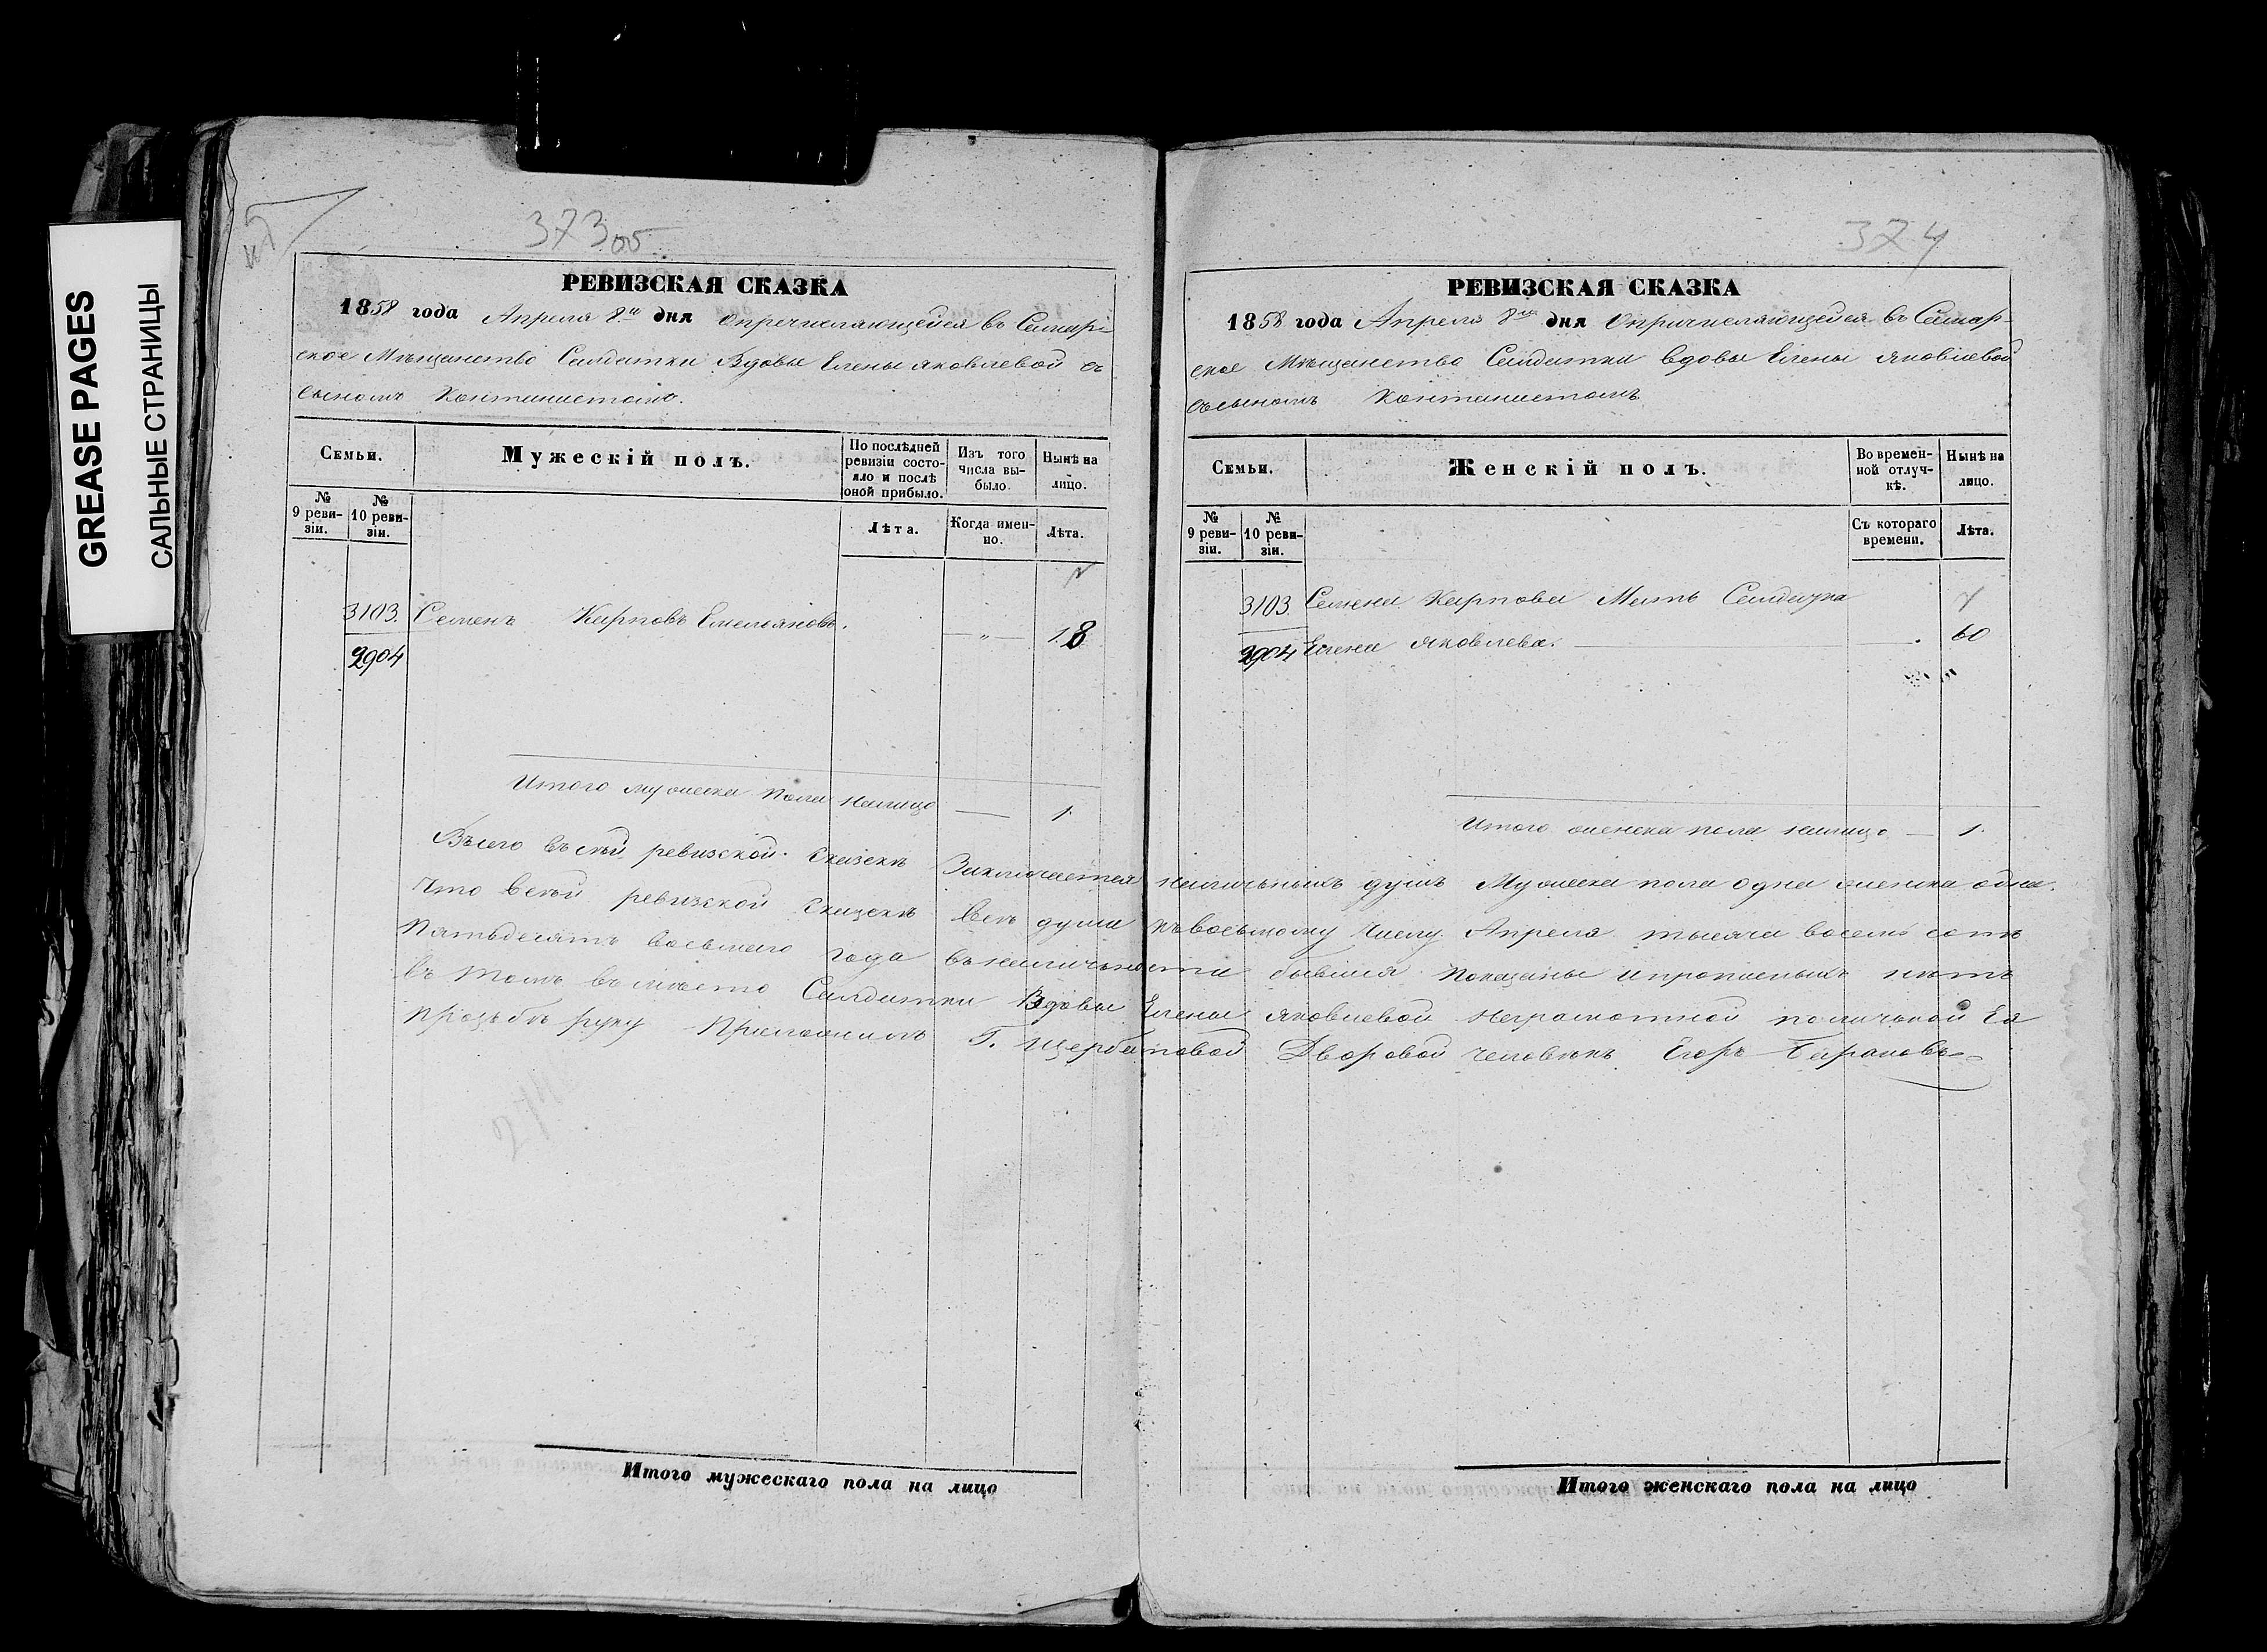 GREASE PAGES
САЛЬНЫЕ СТРАНИЦЫ
373 об
РЕВИЗСКАЯ СКАЗКА
1858 года Апреля 8го дня Опречисляющейся въ Самар-
ское Мѣщанство Салдатки Вдовы Елены Яковлевой съ
сыномъ Контанистомъ.
Семьи.
Мужескій полъ.
По послѣдней ревизіи состо-
яло и послѣ оной прибыло.
Изъ того числа вы-
было.
Нынѣ на лицо.
№ 9 реви-
зіи.
№ 10 реви-
зіи.
Лѣта.
Когда имен-
но.
Лѣта.
3103. Семенъ Карповъ Емельяновъ. — „ — 18
2904
Итого мужеска пола налицо — 1.
374
РЕВИЗСКАЯ СКАЗКА
1858 года Апреля 8го дня Опричисляющейся въ Самар-
ское Мѣщанство Салдатки вдовы Елены Яковлевой
съсыномъ Контанистомъ
Семьи.
Женскій полъ.
Во времен-
ной отлуч-
кѣ.
Нынѣ на лицо.
№ 9 реви-
зіи.
№ 10 реви-
зіи.
Съ котораго времени.
Лѣта.
3103. Семена Карпова Мать Салдатка
2904 Елена Яковлева. — 60
Итого женска пола налицо — 1.
Въсего въсей ревизской Сказкѣ Заключается наличныхъ душъ Мужеска пола одна женска одна.
Что всей ревизской Сказкѣ Всѣ души къвосьмому числу Апреля тысяча восемь сотъ
Пятьдесятъ восьмаго года въналичьности бывшия показаны ипрописныхъ нѣтъ
въ томъ въмѣсто Салдатки Вдовы Елены Яковлевой неграмотной поличьной Ея
прозьбѣ руку Приложилъ Г. Щербаковой Дворовой человѣкъ Егоръ Барановъ
Итого мужескаго пола на лицо
Итого женскаго пола на лицо